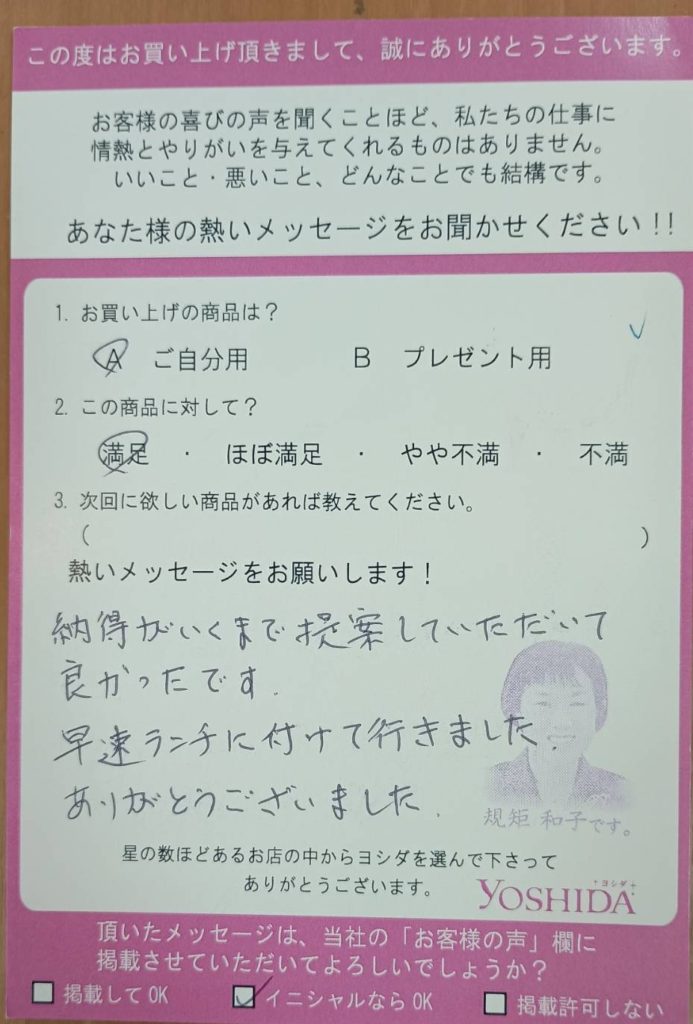 この度はお買い上げ頂きまして、誠にありがとうございます。
お客様の喜びの声を聞くことほど、私たちの仕事に
情熱とやりがいを与えてくれるものはありません。
いいこと・悪いこと、どんなことでも結構です。
あなた様の熱いメッセージをお聞かせください!!
1. お買い上げの商品は？
A ご自分用 B プレゼント用
2. この商品に対して？
満足 ・ ほぼ満足 ・ やや不満 ・ 不満
3. 次回に欲しい商品があれば教えてください。
( )
熱いメッセージをお願いします！
納得がいくまで提案していただいて
良かったです.
早速ランチに付けて行きました.
ありがとうございました.
規矩 和子です。
星の数ほどあるお店の中からヨシダを選んで下さって
ありがとうございます。
ヨシダ
YOSHIDA
頂いたメッセージは、当社の「お客様の声」欄に
掲載させていただいてよろしいでしょうか？
掲載してOK イニシャルならOK 掲載許可しない